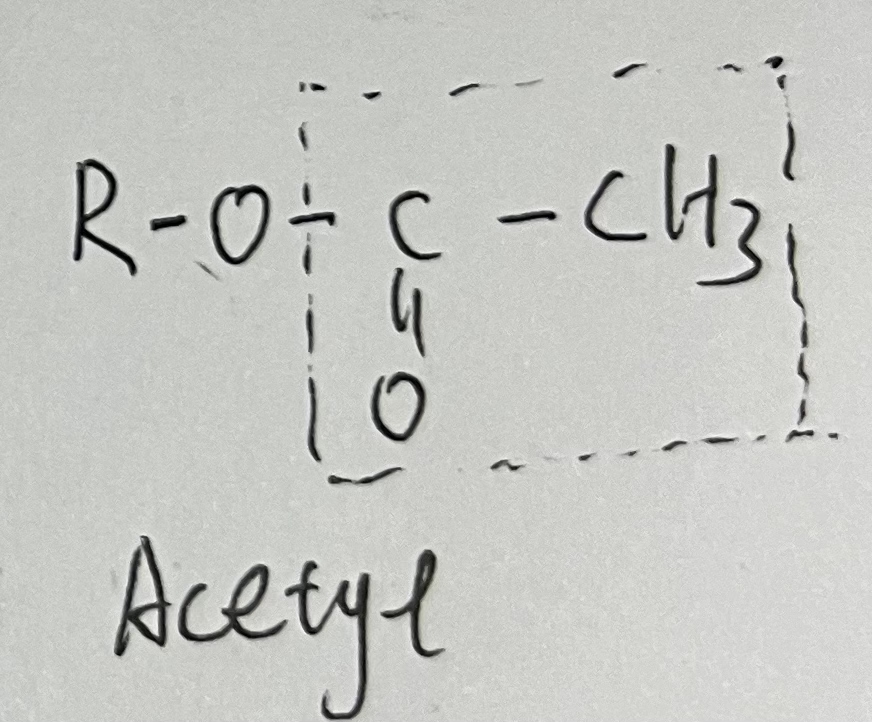 R-O-C-CH3
O
Acetyl